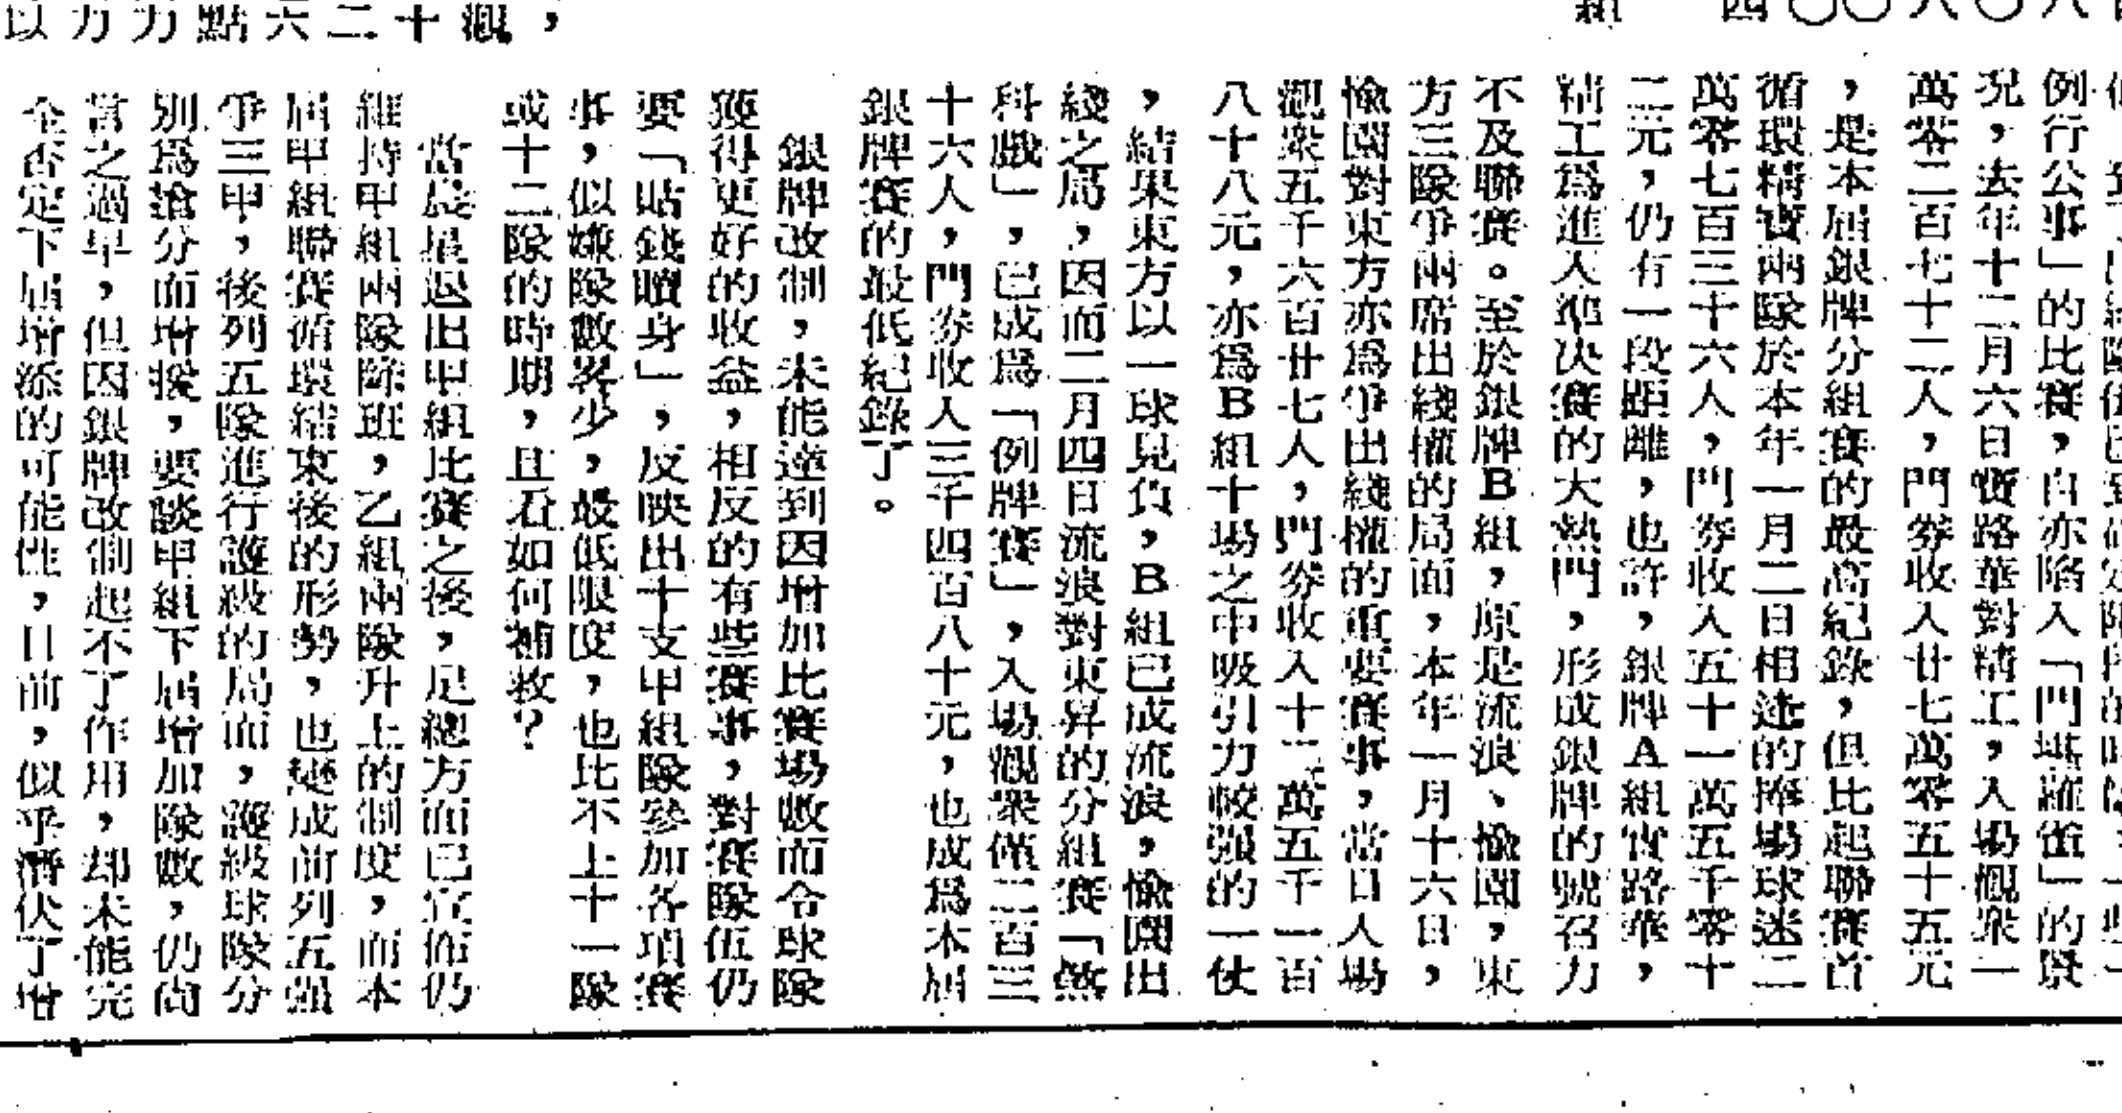 例行公事」的比賽，自亦陷入「門堪羅雀」的景
況，去年十二月六日寶路華對精工，入場觀衆一
萬零二百七十二人，門券收入廿七萬零五十五元
，是本屆銀牌分組賽的最高紀錄，但比起聯賽首
循環精寶兩隊於本年一月二日相逢的捧場球迷二
萬零七百三十六人，門券收入五十一萬五千零十
二元，仍有一段距離，也許，銀牌A組寶路華，
精工爲進入準決賽的大熱門，形成銀牌的號召力
不及聯賽。至於銀牌B組，原是流浪、愉園，東
方三隊爭兩席出綫權的局面，本年一月十六日，
愉園對東方亦爲爭出綫權的重要賽事，當日入場
觀衆五千六百廿七人，門券收入十二萬五千一百
八十八元，亦爲B組十場之中吸引力較强的一仗
，結果東方以一球見負，B組已成流浪，愉園出
綫之局，因而二月四日流浪對東昇的分組賽「煞
科戲」，已成爲「例牌賽」，入場觀衆僅二百三
十六人，門券收入三千四百八十元，也成爲本屆
銀牌賽的最低紀錄了。
銀牌改制，未能達到因增加比賽場數而令球隊
獲得更好的收益，相反的有些賽事，對賽隊伍仍
要「貼錢贖身」，反映出十支甲組隊參加各項賽
事，似嫌隊數畧少，最低限度，也比不上十一隊
或十二隊的時期，且看如何補救？
當晨星退出甲組比賽之後，足總方面已宣佈仍
維持甲組兩隊降班，乙組兩隊升上的制度，而本
屆甲組聯賽循環結束後的形勢，也變成前列五强
爭三甲，後列五隊進行護級的局面，護級球隊分
別爲搶分而增援，要談甲組下屆增加隊數，仍尚
言之過早，但因銀牌改制起不了作用，却未能完
全否定下屆增添的可能性，目前，似乎潛伏了增
以方方點六二十觀，